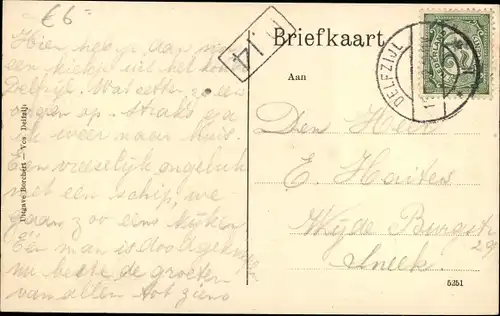 €6
Hier heb je dan
een kiekje uit het
Delfzijl. Wat zitten ze
op. Straks ga
ik weer naar huis.
Een vreeselijk ongeluk
met een schip, we
gaan zoo eens kijken
Een man is dood
nu beste de groeten
van allen tot ziens
Uitgave Borchert - Vos. Delfzijl
14
Briefkaart.
Aan
DELFZIJL
NEDERLAND
2½
Den Heer
E. Haites
Wijde Burgstr
29
Sneek.
5251